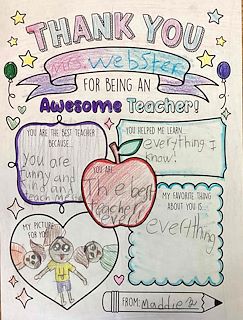 THANK YOU
Mrs. Webster
FOR BEING AN
Awesome Teacher!
YOU ARE THE BEST TEACHER
BECAUSE...
you are
funny and
kind and
teach me
YOU HELPED ME LEARN...
everything I
know!
YOU ARE
The best
teacher
ever
MY FAVORITE THING
ABOUT YOU IS...
everything
MY PICTURE
FOR YOU
FROM: Maddie